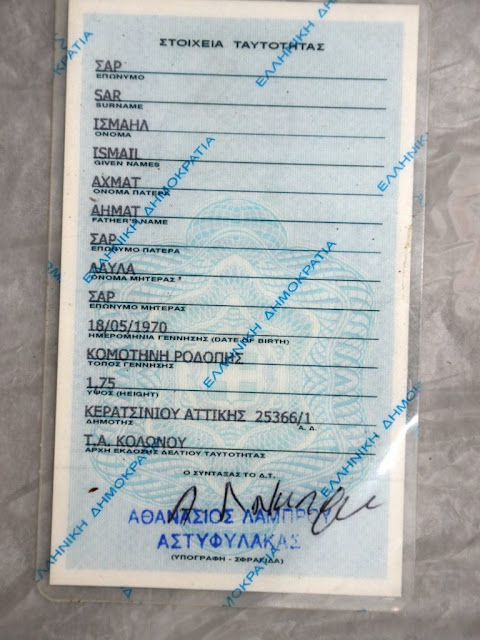 ΣΤΟΙΧΕΙΑ ΤΑΥΤΟΤΗΤΑΣ
ΣΑΡ
ΕΠΩΝΥΜΟ
SAR
SURNAME
ΙΣΜΑΗΛ
ΟΝΟΜΑ
ISMAIL
GIVEN NAMES
ΑΧΜΑΤ
ΟΝΟΜΑ ΠΑΤΕΡΑ
AHMAT
FATHER'S NAME
ΣΑΡ
ΕΠΩΝΥΜΟ ΠΑΤΕΡΑ
ΛΑΥΛΑ
ΟΝΟΜΑ ΜΗΤΕΡΑΣ
ΣΑΡ
ΕΠΩΝΥΜΟ ΜΗΤΕΡΑΣ
18/05/1970
ΗΜΕΡΟΜΗΝΙΑ ΓΕΝΝΗΣΗΣ (DATE OF BIRTH)
ΚΟΜΟΤΗΝΗ ΡΟΔΟΠΗΣ
ΤΟΠΟΣ ΓΕΝΝΗΣΗΣ
1,75
ΥΨΟΣ (HEIGHT)
ΚΕΡΑΤΣΙΝΙΟΥ ΑΤΤΙΚΗΣ 25366/1
ΔΗΜΟΤΗΣ Α.Δ.
Τ.Α. ΚΟΛΩΝΟΥ
ΑΡΧΗ ΕΚΔΟΣΗΣ ΔΕΛΤΙΟΥ ΤΑΥΤΟΤΗΤΑΣ
Ο ΣΥΝΤΑΞΑΣ ΤΟ Δ.Τ.
ΑΘΑΝΑΣΙΟΣ ΛΑΜΠΡΟΥ
ΑΣΤΥΦΥΛΑΚΑΣ
(ΥΠΟΓΡΑΦΗ - ΣΦΡΑΓΙΔΑ)
ΕΛΛΗΝΙΚΗ ΔΗΜΟΚΡΑΤΙΑ
ΕΛΛΗΝΙΚΗ ΔΗΜΟΚΡΑΤΙΑ
ΕΛΛΗΝΙΚΗ ΔΗΜΟΚΡΑΤΙΑ
ΕΛΛΗΝΙΚΗ ΔΗΜΟΚΡΑΤΙΑ